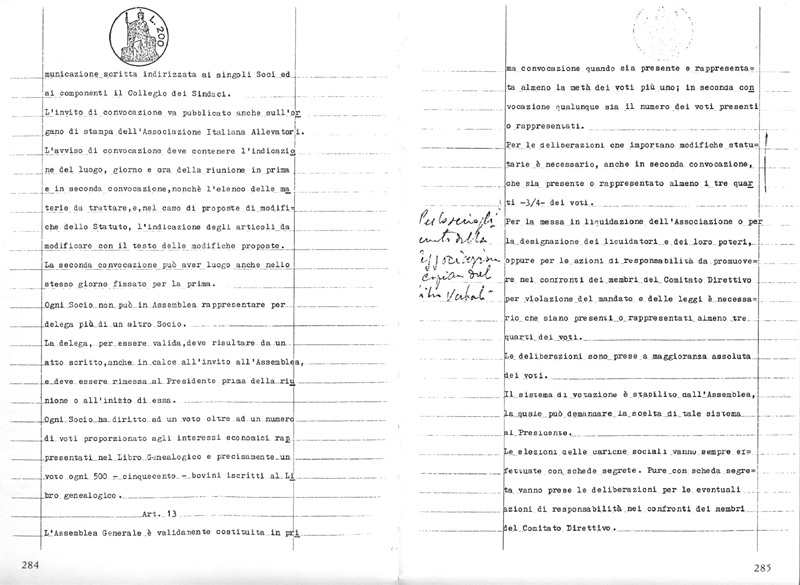 L. 200
municazione scritta indirizzata ai singoli Soci ed
ai componenti il Collegio dei Sindaci.
L'invito di convocazione va pubblicato anche sull'or
gano di stampa dell'Associazione Italiana Allevatori.
L'avviso di convocazione deve contenere l'indicazio
ne del luogo, giorno e ora della riunione in prima
e in seconda convocazione,nonchè l'elenco delle ma
terie da trattare,e,nel caso di proposte di modifi=
che dello Statuto, l'indicazione degli articoli da
modificare con il testo delle modifiche proposte.
La seconda convocazione può aver luogo anche nello
stesso giorno fissato per la prima.
Ogni Socio non può in Assemblea rappresentare per
delega più di un altro Socio.
La delega, per essere valida,deve risultare da un
atto scritto,anche in calce all'invito all'Assemblea,
e deve essere rimessa al Presidente prima della riu
nione o all'inizio di essa.
Ogni Socio ha diritto ad un voto oltre ad un numero
di voti proporzionato agli interessi economici rap
presentati nel Libro Genealogico e precisamente un
voto ogni 500 - cinquecento - bovini iscritti al Li
bro genealogico.
Art. 13
L'Assemblea Generale è validamente costituita in pri
284
ma convocazione quando sia presente e rappresenta=
ta almeno la metà dei voti più uno; in seconda con
vocazione qualunque sia il numero dei voti presenti
o rappresentati.
Per le deliberazioni che importano modifiche statu=
tarie è necessario, anche in seconda convocazione,
che sia presente o rappresentato almeno i tre quar
ti -3/4- dei voti.
Per la messa in liquidazione dell'Associazione o per
la designazione dei liquidatori e dei loro poteri,
oppure per le azioni di responsabilità da promuove=
re nei confronti dei membri del Comitato Direttivo
per violazione del mandato e delle leggi è necessa=
rio che siano presenti o rappresentati almeno tre
quarti dei voti.
Le deliberazioni sono prese a maggioranza assoluta
dei voti.
Il sistema di votazione è stabilito dall'Assemblea,
la quale può demandare la scelta di tale sistema
al Presidente.
Le elezioni delle cariche sociali vanno sempre ef=
fettuate con schede segrete. Pure con scheda segre=
ta vanno prese le deliberazioni per le eventuali
azioni di responsabilità nei confronti dei membri
del Comitato Direttivo.
285